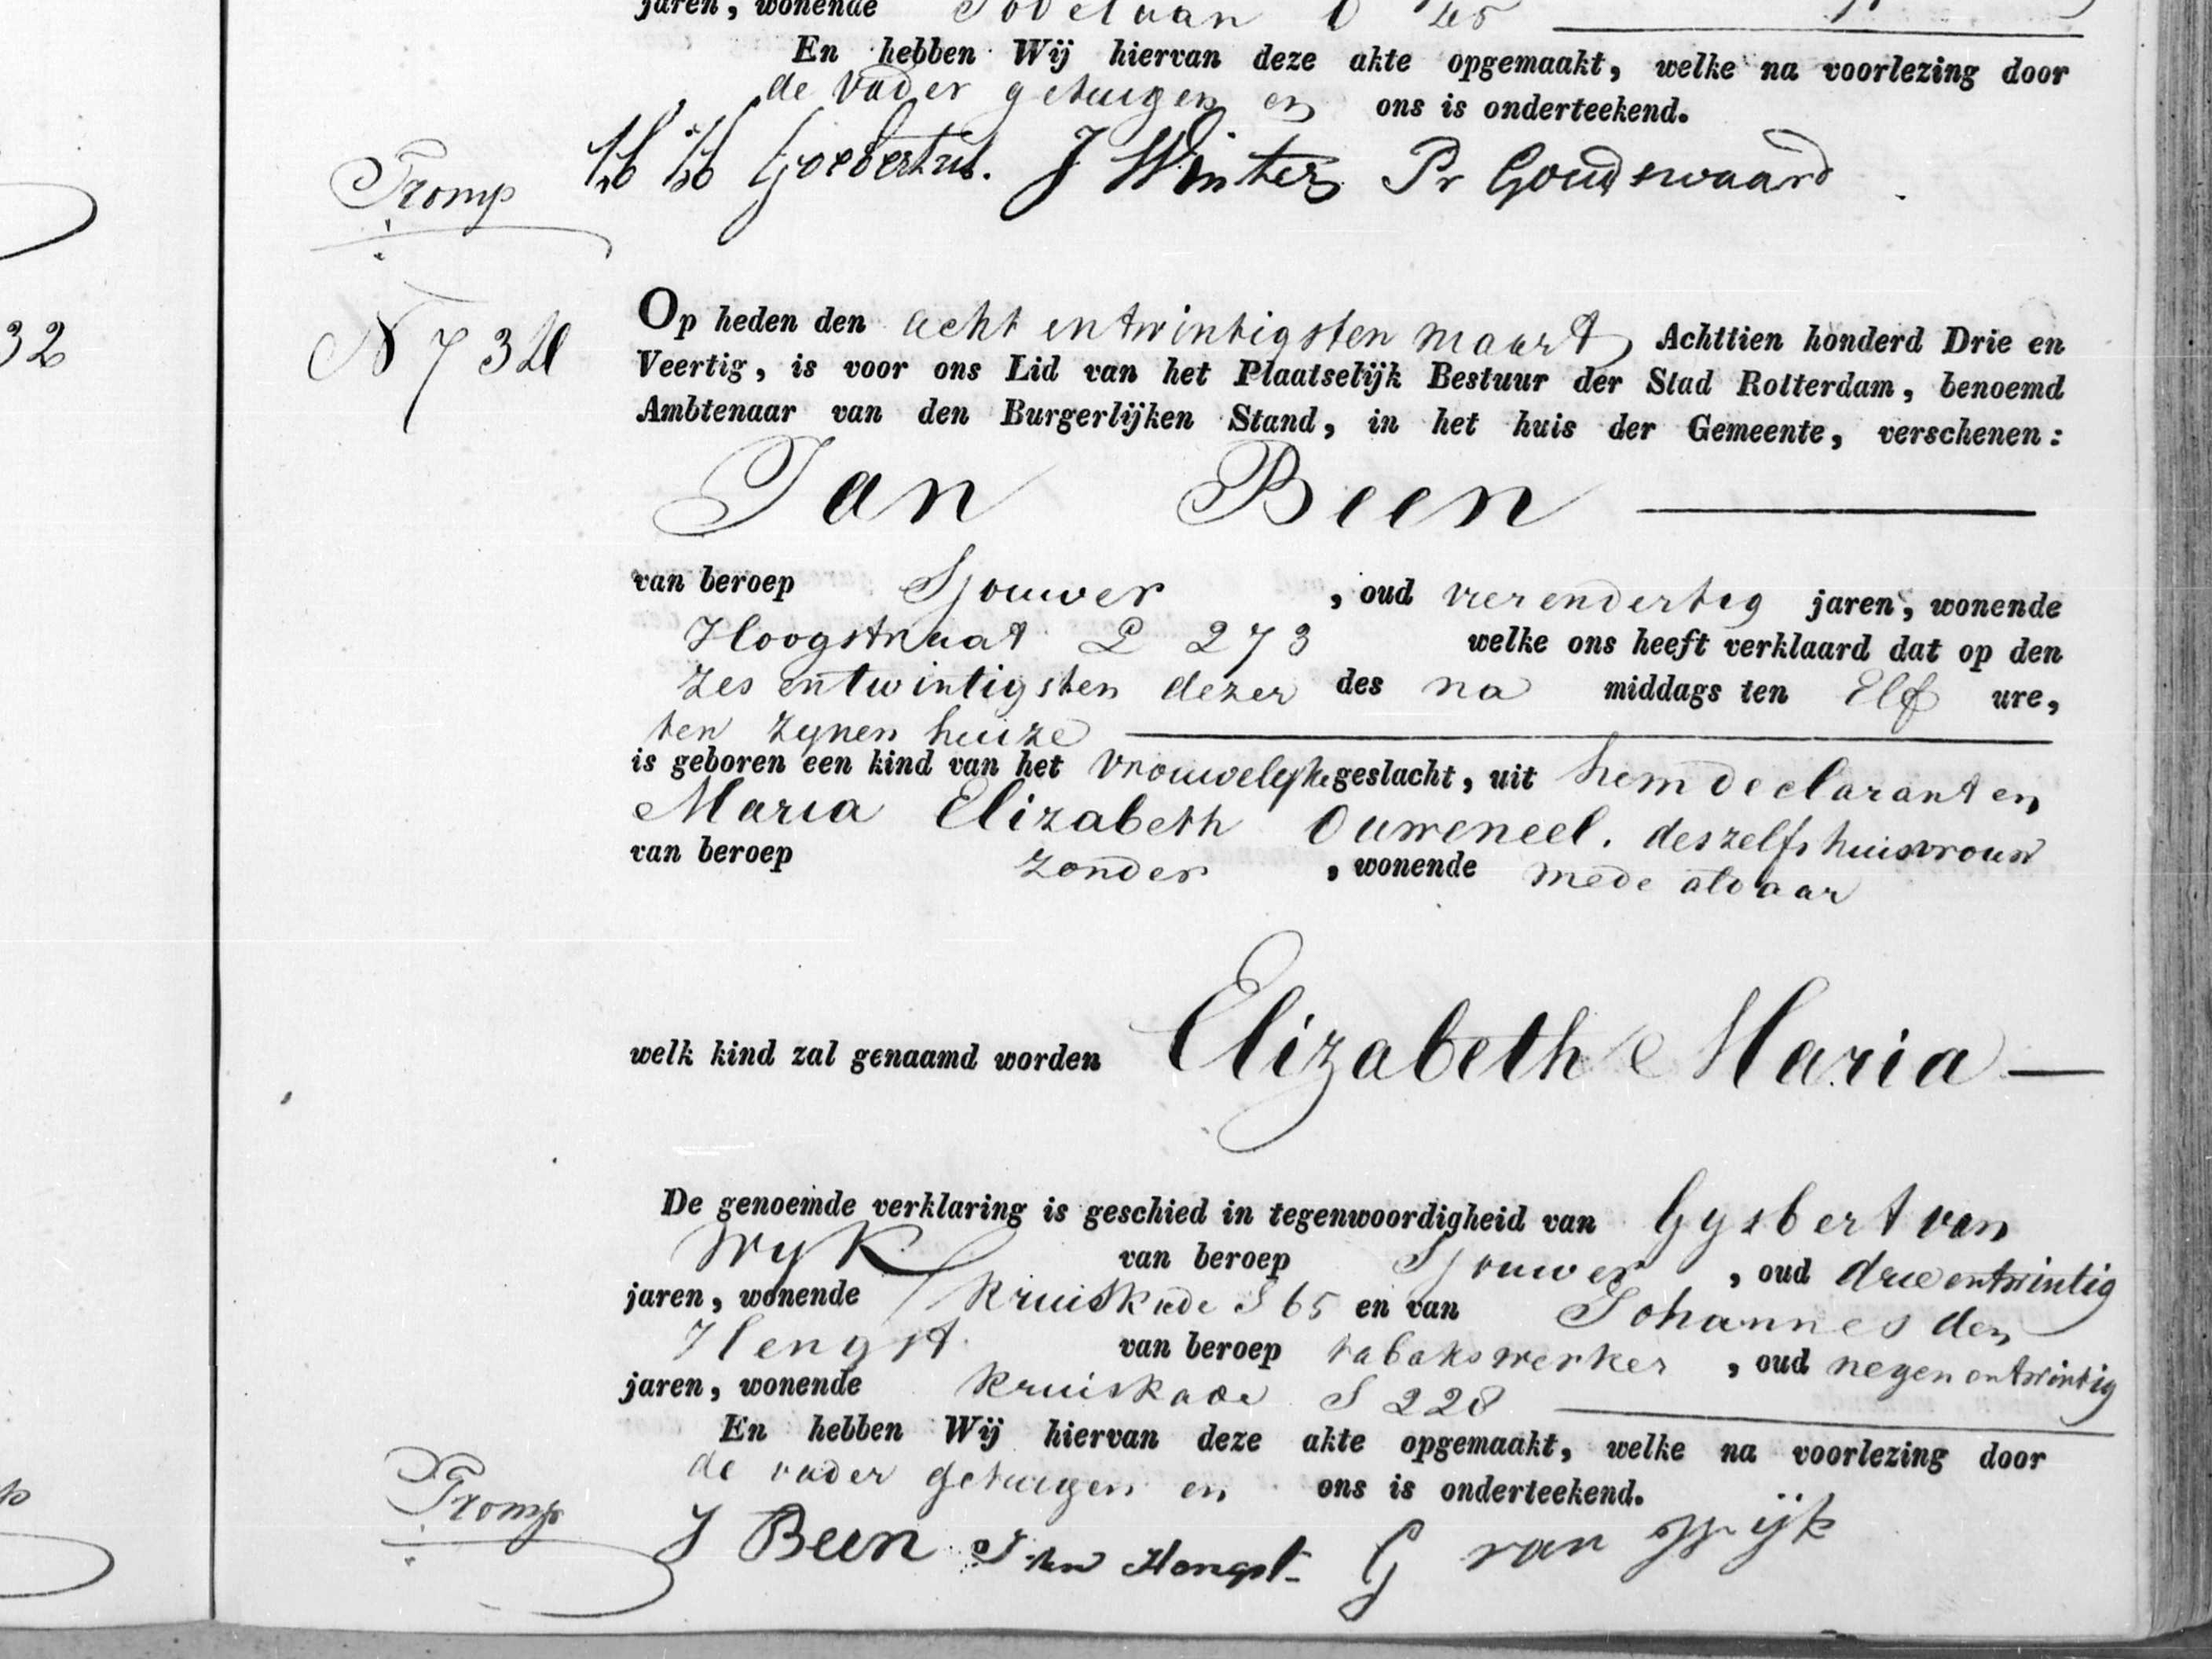 jaren, wonende
En hebben Wij hiervan deze akte opgemaakt, welke na voorlezing door
de vader getuigen en ons is onderteekend.
Goebertus. J Winter Pr Goudswaard
Tromp
32
N 734
Op heden den acht entwintigsten maart Achttien honderd Drie en
Veertig, is voor ons Lid van het Plaatselijk Bestuur der Stad Rotterdam, benoemd
Ambtenaar van den Burgerlijken Stand, in het huis der Gemeente, verschenen:
Jan Been
van beroep Sjouwer, oud vierendertig jaren, wonende
Hoogstraat L 273 welke ons heeft verklaard dat op den
zes entwintigsten dezer des na middags ten Elf ure,
ten zynen huize
is geboren een kind van het vrouwelyke geslacht, uit hem declarant en
Maria Elizabeth Ouweneel. deszelfs huisvrouw
van beroep zonder, wonende mede aldaar
welk kind zal genaamd worden Elizabeth Maria
De genoemde verklaring is geschied in tegenwoordigheid van Gysbert van
Wyk van beroep Sjouwer, oud drieentwintig
jaren, wonende Kruiskade S 65 en van Johannes den
Hengst van beroep tabakswerker, oud negenentwintig
jaren, wonende Kruiskade S 228
En hebben Wij hiervan deze akte opgemaakt, welke na voorlezing door
de vader getuigen en ons is onderteekend.
Tromp
J Been J den Hengst G van Wijk